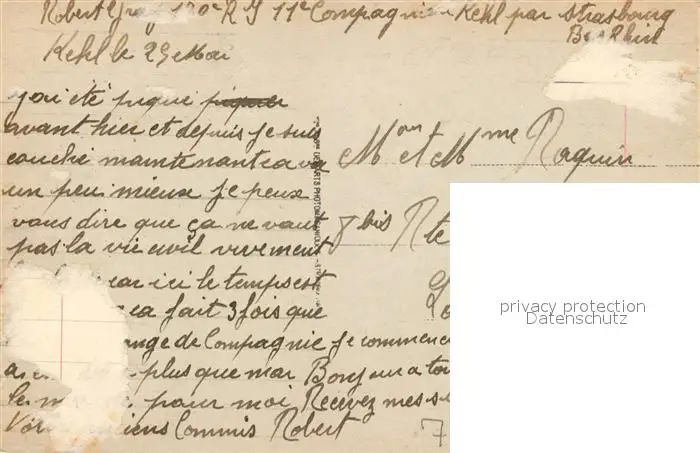 Robert 170e R I 11e Compagnie Kehl par Strasbourg
Bas Rhin
Kehl le 29 Mai
j'ai été piqué piquer
avant hier et depuis je suis
couché maintenant ca va
un peu mieux je peux
vous dire que ça ne vaut
pas la vie civil vivement
car ici le temps est
ca fait 3 fois que
ange de Compagnie je commence
plus que mar Bonjour a tou
le pour moi Recevez mes
Commis Robert
Mon et Mme Raquin
8 bis Rte
7
privacy protection
Datenschutz